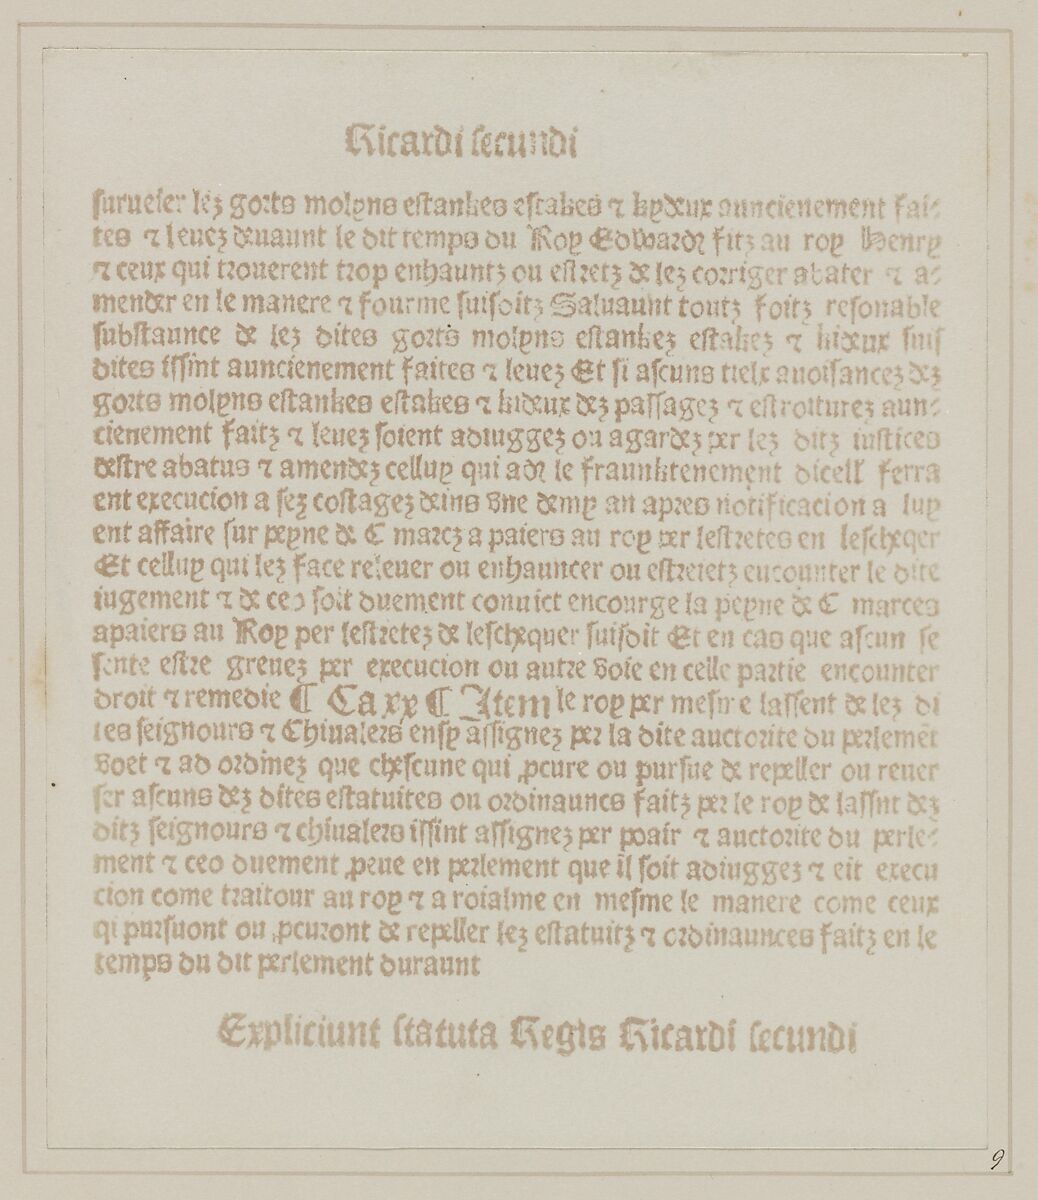 Ricardi secundi
surueier lez gorts molyns estankes estakes ⁊ kydeux aunciennement fai⸗
tes ⁊ leuez deuaunt le dit temps du Roy Edwardz fitz au roy Henry
⁊ ceux qui trouerent trop enhauntz ou estretz de lez corriger abater ⁊ a⸗
mender en le manere ⁊ fourme suisditz Saluaunt toutz foitz resonable
substaunce de lez dites gorts molyns estankez estakez ⁊ kideux suis
dites issint auncienement faites ⁊ leuez Et si ascuns tielx anoisancez dez
gorts molyns estankes estakes ⁊ kideux dez passagez ⁊ estroiturez aun⸗
cienement faitz ⁊ leuez soient adiuggez ou agardez per lez ditz iustices
destre abatus ⁊ amendez celluy qui adz le franktenement dicell ferra
ent execucion a sez costagez deins vne demy an apres notificacion a luy
ent affaire sur peyne de C marcz a paiers au roy per lestretes en leschxqer
Et celluy qui lez face releuer ou enhauncer ou estreietz encounter le dite
iugement ⁊ de ceo soit duement conuict encourge la peyne de C marces
apaiers au Roy per lestretez de leschequer suisdit Et en cas que ascun se
sente estre greuez per execucion ou autre voie en celle partie encounter
droit ⁊ remedie ¶ Ca xx ¶ Item le roy per mesme lassent de lez di
tes seignours ⁊ Chiualers ensy assignez per la dite auctorite du perlemēt
voet ⁊ ad ordinez que chescune qui ꝓcure ou pursue de repeller ou reuer
ser ascuns dez dites estatuites ou ordinaunces faitz per le roy de lassnt dez
ditz seignours ⁊ chiualers issint assignez per poair ⁊ auctorite du perle⸗
ment ⁊ ceo duement ꝓeue en perlement que il soit adiuggez ⁊ eit execu
cion come traitour au roy ⁊ a roialme en mesme le manere come ceux
qi pursuont ou ꝓcuront de repeller lez estatuitz ⁊ ordinaunces faitz en le
temps du dit perlement duraunt
Expliciunt statuta Regis Ricardi secundi
9